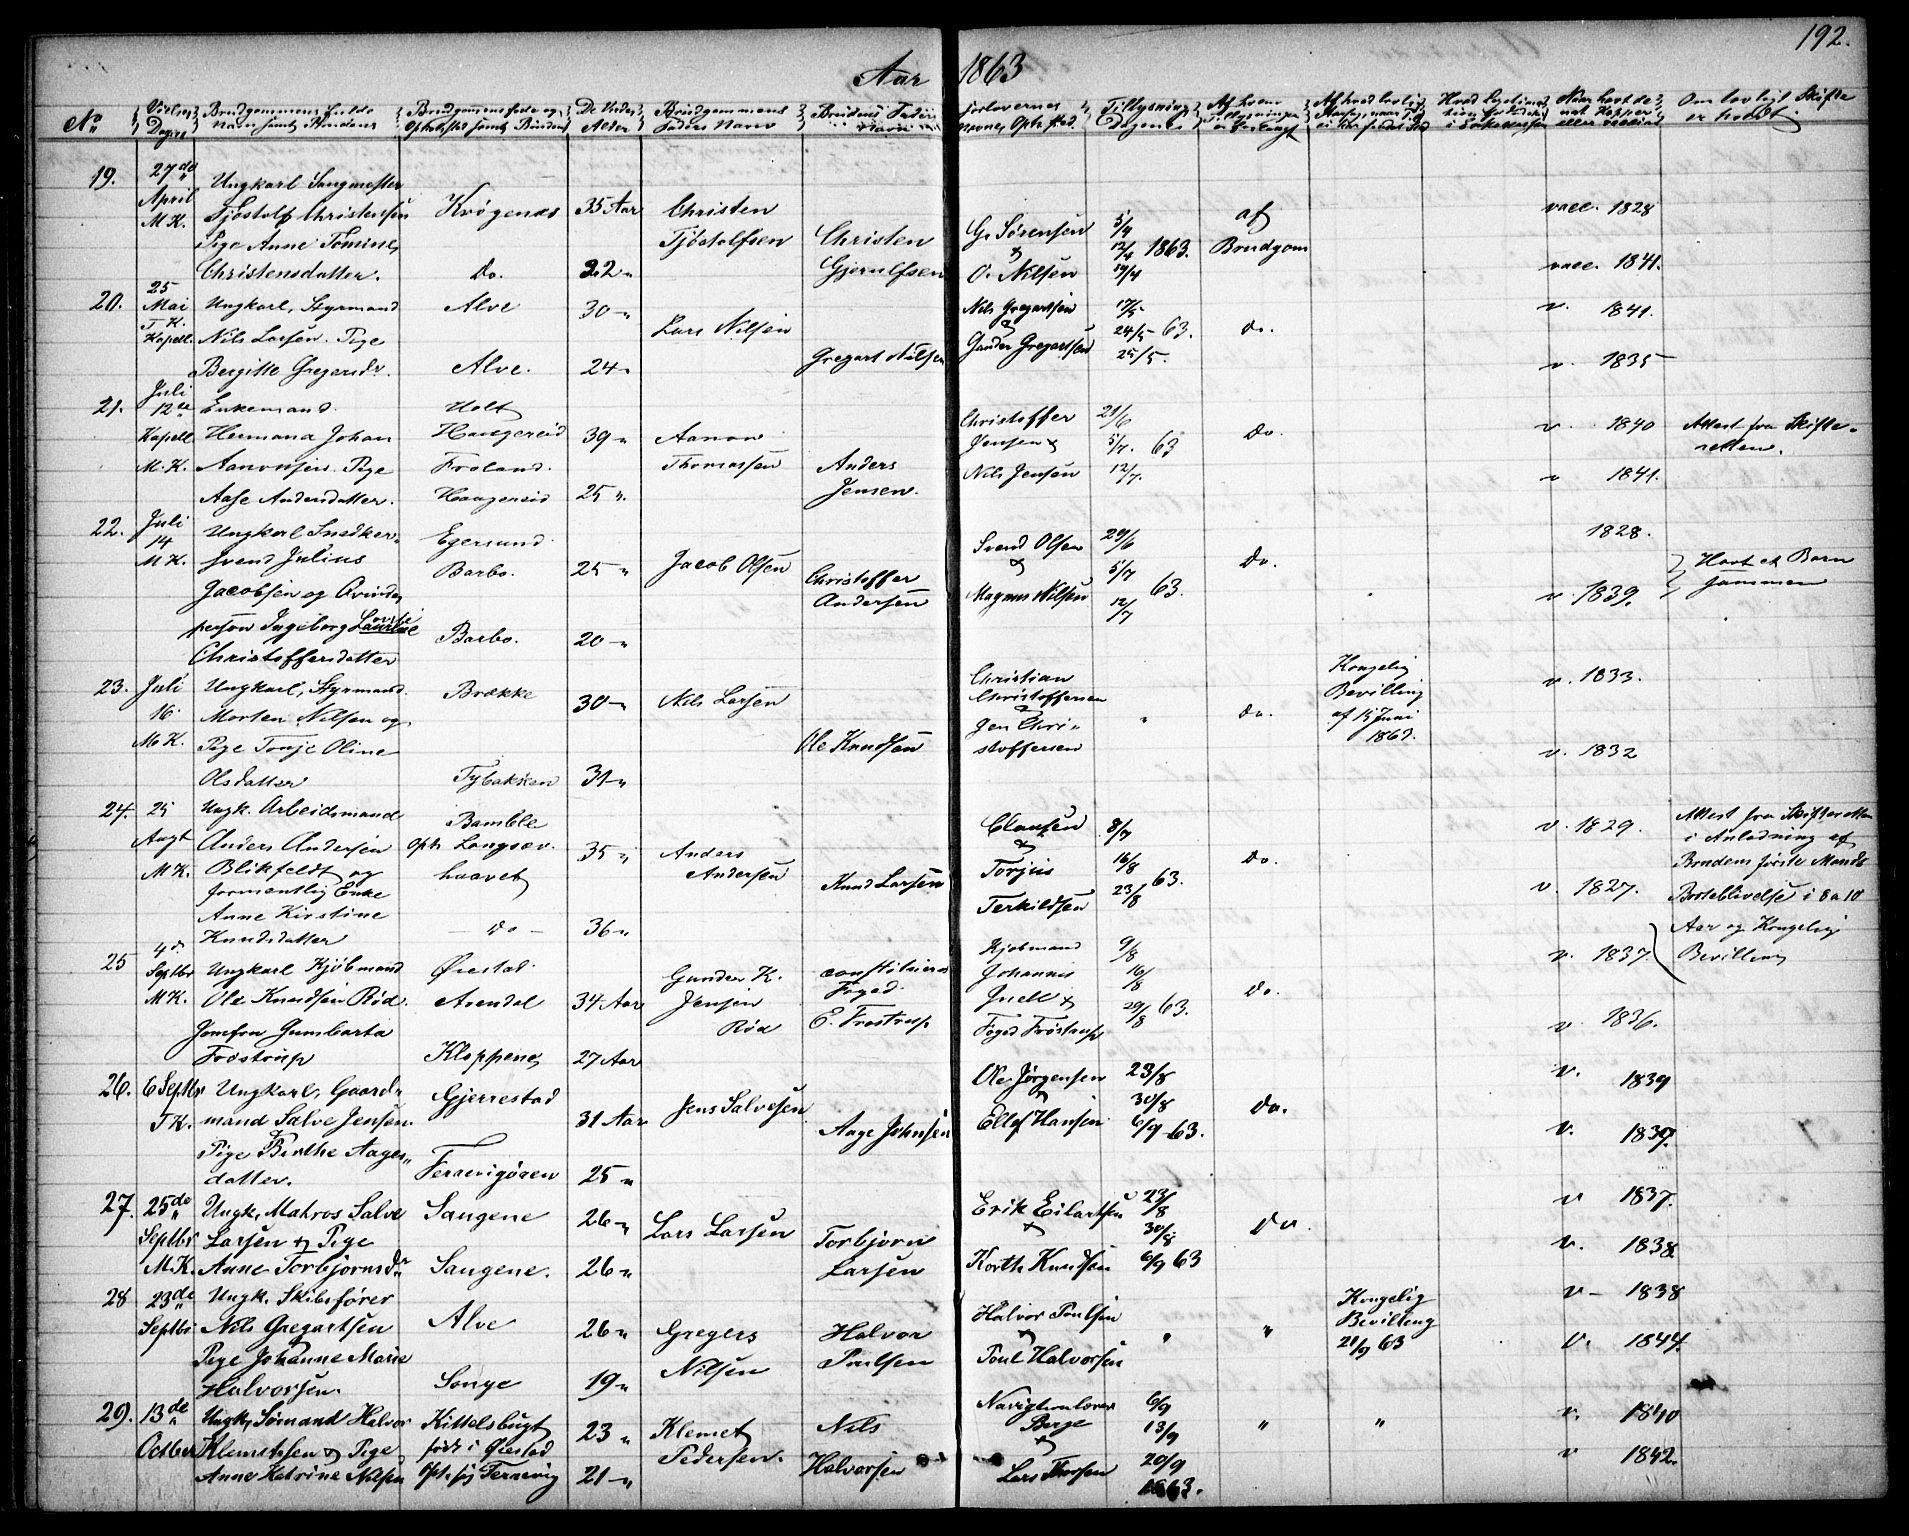 192.
Aar 1863
No
19. 27de April M.K.
Ungkarl Sangmester
Tjöstolf Christensen
Pige Anne Tomine
Christensdatter.
Krögenæs
Do.
35 Aar
22 "
Christen
Tjöstolfsen
Christen
Gjerulfsen
G. Sørensen
&
O. Nilsen
5/4
12/4 1863.
19/4
af
Brudgom
vacc. 1828
vacc. 1841.
20. 25 Mai T.K. Kapell.
Ungkarl, Styrmand
Nils Larsen. Pige
Bergitte Gregersdr.
Alve
Alve.
30 "
24 "
Lars Nilsen
Gregart Nilsen
Nils Gregartsen
&
Gunder Gregartsen
17/5
24/5 63.
25/5.
Do.
v. 1841.
v. 1835
21. Juli 12te Kapell M.K.
Enkemand
Hermana Johan
Aanonsen. Pige
Aase Andersdatter.
Holt
Haugereid
Froland.
Haugereid
39 "
25 "
Aanon
Thomassen
Anders
Jensen.
Christoffer
Jensen &
Nils Jensen
21/6
5/7. 63
12/7.
Do.
v. 1840
v 1841.
Attest fra Skifte-
retten.
22. Juli 14 M.K.
Ungkarl Snedker
Svend Julius
Jacobsen og Qvindes
person Ingeborg Laurine
Christoffersdatter
Egersund
Barbo.
Barbo.
25 "
20 "
Jacob Olsen
Christoffer
Andersen
Svend Olsen
&
Magnus Nilsen
29/6
5/7 63.
12/7
Do.
1828.
v. 1839.
Havt et Barn
sammen
23. Juli 16. M.K.
Ungkarl, Styrmand.
Morten Nilsen og
Pige Tonje Oline
Olsdatter
Brække
Tybakken
30 "
31 "
Nils Larsen
Ole Knudsen
Christian
Christoffersen
&
Jen Chri-
stoffersen
"
Do.
Kongelig
Bevilling
af 15 Juni
1863.
v. 1833.
v. 1832
24. 25 Augt M.K.
Ungk. Arbeidsmand
Anders Andersen
Blikfeldt og
formentlig Enke
Anne Kirstine
Knudsdatter
Bamble
oph. Langsæv.
haavet
— Do —
35 "
36 "
Anders
Andersen
Knud Larsen
Clausen
&
Torjus
Terkildsen
8/7
16/8 63.
23/8
Do.
v. 1829.
v. 1827.
Attest fra Skifteretten
i Anledning af
Brudens første Mands
Borteblivelse i 8 a 10
Aar og Kongelig
Bevilling
25 4de Septbr M.K.
Ungkarl Kjöbmand
Ole Knudsen Röd.
Jomfru Gumbarta
Frostrup
Øiestad.
Arendal
Kloppene
34 Aar
27 Aar
Gunder K.
Jensen
Röd
constitueret
Foged
E. Frostrup
Kjøbmand
Johannes
Juell &
Foged Fröstrup
9/8
16/8 63.
29/8
Do.
v. 1837
v. 1836.
26. 6 Septbr T.K.
Ungkarl, Gaard-
mand Salve Jensen.
Pige Birthe Aages-
datter.
Gjerrestad
Fervigören
31 Aar
25 "
Jens Salvesen
Aage Johnsen
Ole Jørgensen
&
Ellef Hansen
23/8
30/8
6/9 63.
Do.
v. 1839
v. 1839.
27. 25de Septbr M.K.
Ungk. Matros Salve
Larsen & Pige
Anne Torbjornsdr
Saugene
Saugene.
26 "
26 "
Lars Larsen
Torbjørn
Larsen
Erik Eilartsen
&
Korth Knudsen
23/8
30/8
6/9 63
Do
v 1837.
v. 1838.
28 23de Septbr
Ungk. Skibsfører
Nils Gregartsen
Pige Johanne Marie
Halvorsen.
Alve
Songe
26 "
19 "
Gregers
Nilsen
Halvor
Poulsen
Halvor Poulsen
&
Poul Halvorsen
"
"
Kongelig
Bevilling
21/9 63
v- 1838
v. 1844.
29. 13de Octber
Ungk, Sømand Halvor
Klemetsen & Pige
Anne Katrine Nilsen
Kittelsbugt
född i Øiestad
Oph. sig Fervig
23 "
21 "
Klemet
Pedersen.
Nils
Halvorsen
Navigtionlærer
Berge
&
Lars Thorsen
6/9
13/9
20/9
1863.
"
"
v. 1840
v 1842.